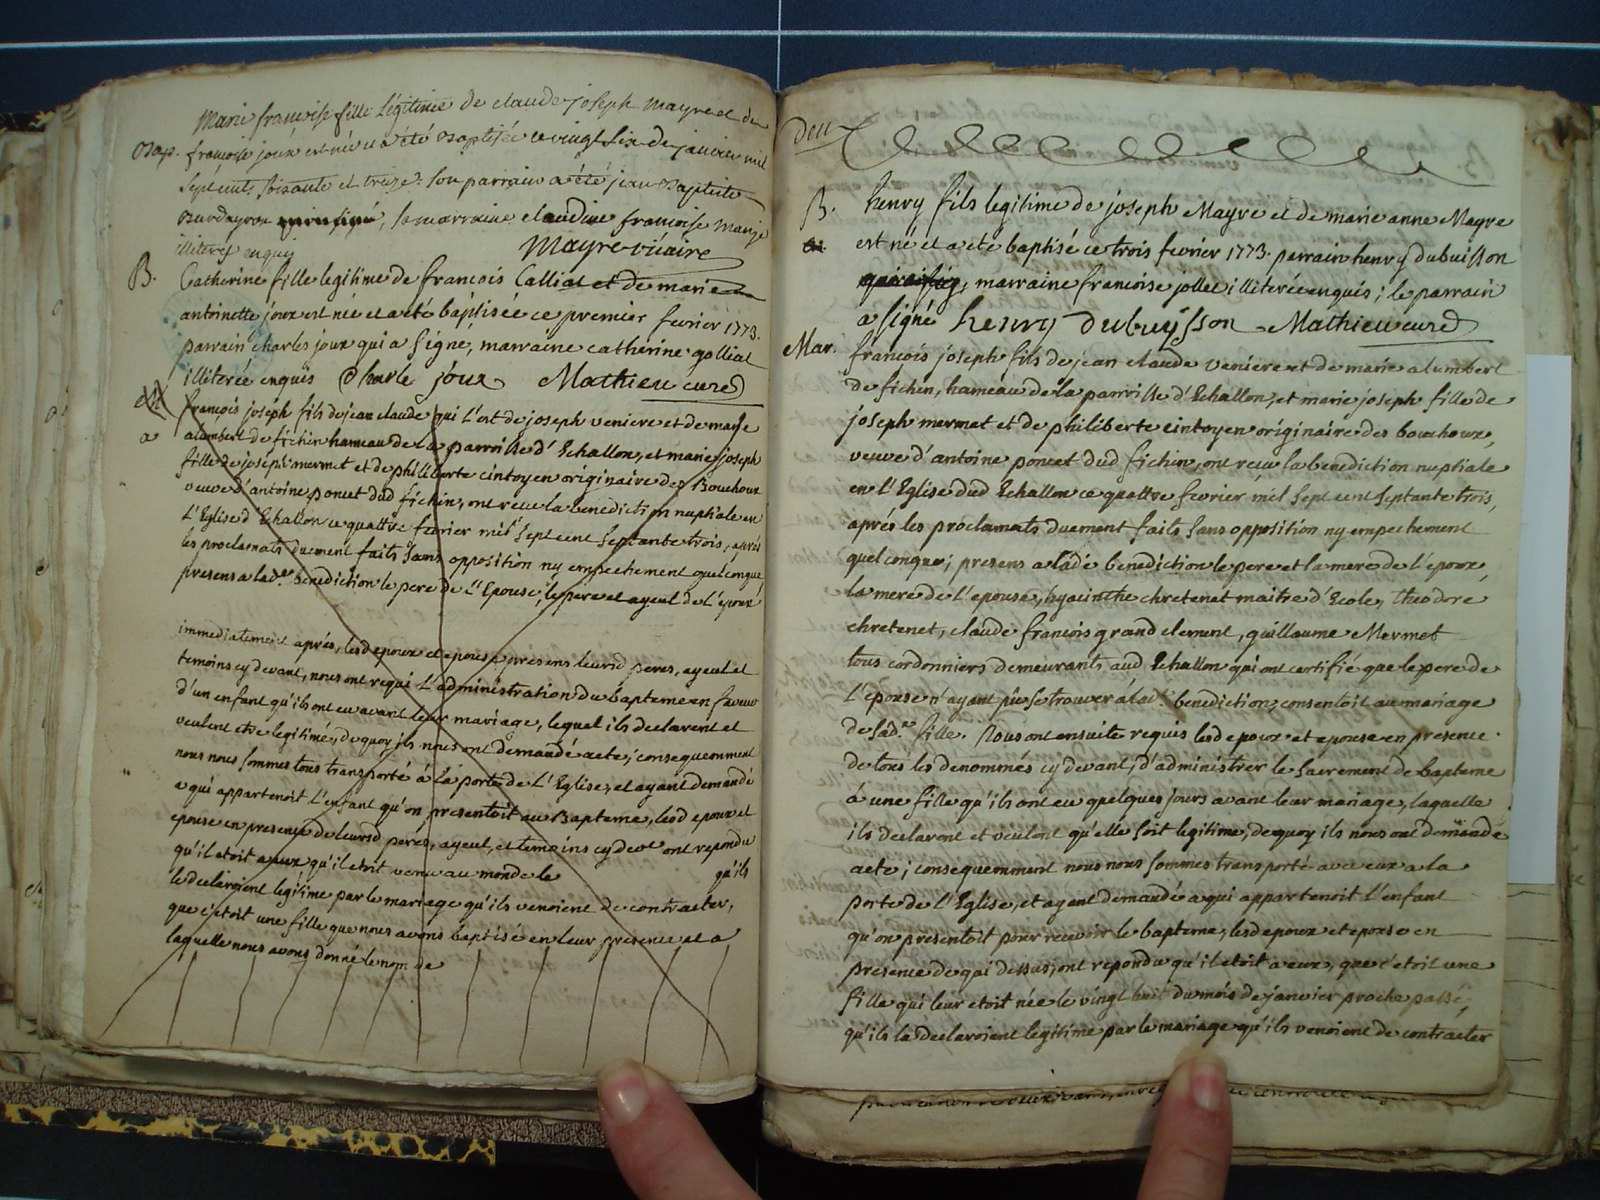 Marie françoise fille légitime de claude joseph Mayre et de
Bap. françoise joux est née et a été baptisée ce vingt six de janvier mil
sept cents soixante et treze. son parrain a été jean baptiste
, sa marraine claudine françoise
illiterés enquis Mayre vicaire
B. Catherine fille legitime de françois Calliat et de marie
antoinette joux est née et a eté baptisée ce premier fevrier 1773.
parrain charles joux qui a signé, marraine catherine golliat
illiterée enquis Charle joux Mathieu curé
françois joséph fils de jean claude qui l'est de joseph veniere et de marie
a alombert de fichin hameau de la parroisse d'Echallon, et marie joseph
fille de joseph mermet et de philiberte cintoyen originaire des Bouchoux
veuve d'antoine poncet dud fichin, ont receu la benediction nuptiale en
L'Eglise d'Echallon ce quattre fevrier mil sept cent septante trois, aprés
les proclamats duement faits sans opposition ny empechement quelconque,
presens a lad.e benediction le pere de l'Epouse, le pere et ayeul de l'epoux
immediatement aprés, lesd epoux et epouse presens leursd peres, ayeul et
temoins cy devant, nous ont requi L'administration du bapteme en faveur
d'un enfant qu'ils ont eu avant leur mariage, lequel ils declarent et
veulent etre legitimé, de quoy ils nous ont demandé acte; consequemment
nous nous sommes tous transporté à la porte de L'Eglise, et ayant demandé
a qui appartenoit L'enfant qu'on presentoit au Bapteme, lesd epoux et
epouse en presence de leursd peres, ayeul, et temoins cy devt ont repondu
qu'il etoit a eux qu'il etoit venu au monde le qu'ils
le declaroient legitime par le mariage qu'ils venoient de contracter,
que c'etoit une fille que nous avons baptisé en leur presence et a
laquelle nous avons donné le nom de
B. henry fils legitime de joseph Mayre et de marie anne Mayre
est né et a eté baptisé ce trois fevrier 1773. parrain henry dubuisson
marraine françoise jollet illiterée enquis; le parrain
a signé henry dubuysson Mathieu curé
Mar. françois joseph fils de jean claude veniere et de marie alombert
de fichin, hameau de la parroisse d'Echallon, et marie joseph fille de
joseph mermet et de philiberte cintoyen originaire des bouchoux,
veuve d'antoine poncet dud fichin, ont receu la benediction nuptiale
en L'Eglise dud Echallon ce quattre fevrier mil sept cent septante trois,
aprés les proclamats duement faits sans opposition ny empechement
quelconque; presens a lade benediction le pere et la mere de l'epoux,
la mere de l'epouse, hyacinthe chretenet maitre d'Ecole, theodore
chretenet, claude françois grand clement, guillaume Mermet
tous cordonniers demeurants aud Echallon qui ont certifié que le pere de
L'epouse n'ayant pu se trouver a lad.e benediction, consentoit au mariage
de sad.e fille. Nous ont ensuite requis lesd epoux et epouse en presence
de tous les denommés cy devant, d'administrer le sacrement de bapteme
à une fille qu'ils ont eu quelques jours avant leur mariage, laquelle
ils declarent et veulent qu'elle soit legitime, de quoy ils nous ont demandé
acte; consequemment nous nous sommes transporté avec eux a la
porte de l'Eglise, et ayant demandé a qui appartenoit L'enfant
qu'on presentoit pour recevoir le bapteme, lesd epoux et epouse en
presence de qui dessus, ont repondu qu'il etoit a eux, que c'etoit une
fille qui leur etoit née le vingt huit du mois de janvier proche passé;
qu'ils la declaroient legitime par le mariage qu'ils venoient de contracter